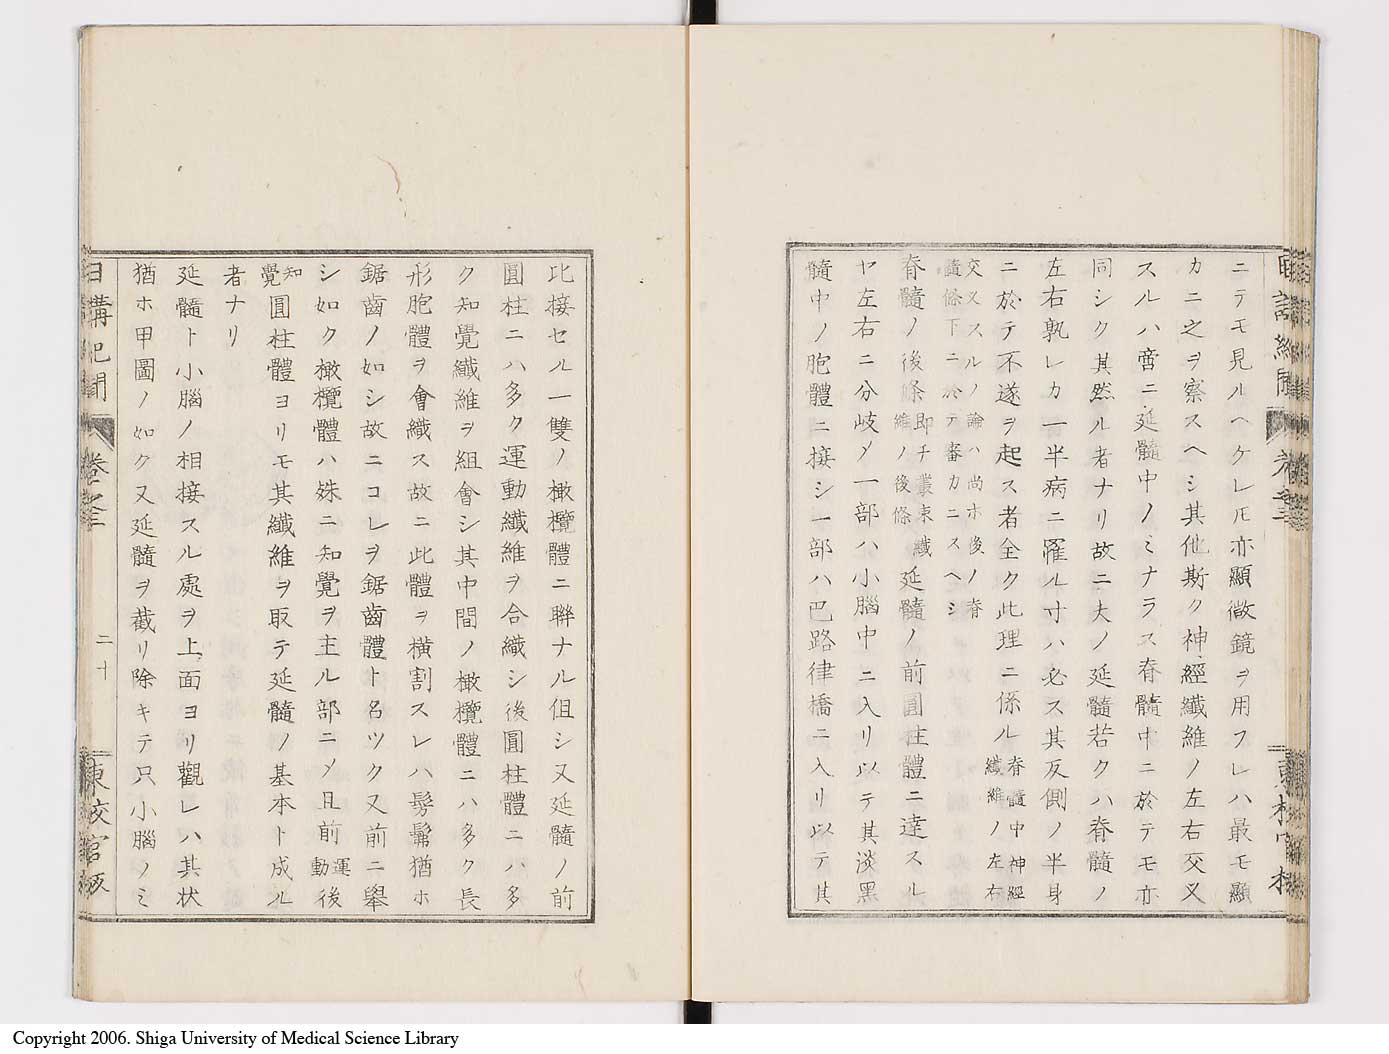 ニテモ見ルヘケレ𪜈亦顯微鏡ヲ用フレハ最モ顯
カニ之ヲ察スヘシ其他斯ク神經纖維ノ左右交叉
スルハ啻ニ延髓中ノミナラス脊髓中ニ於テモ亦
同シク其然ル者ナリ故ニ夫ノ延髓若クハ脊髓ノ
左右孰レカ一半病ニ罹ル寸ハ必ス其反側ノ半身
ニ於テ不遂ヲ起ス者全ク此理ニ係ル脊髓中神經纖維ノ左右
交叉スルノ論ハ尚ホ後ノ脊髓條下ニ於テ審カニスヘシ
脊髓ノ後條即チ叢束纖維ノ後條延髓ノ前圓柱體ニ達スル
ヤ左右ニ分岐〆一部ハ小腦中ニ入リ以テ其淡黑
髓中ノ胞體ニ接シ一部ハ巴路律橋ニ入リ以テ其
比接セル一雙ノ橄欖體ニ聯ナル但シ又延髓ノ前
圓柱ニハ多ク運動纖維ヲ合織シ後圓柱體ニハ多
ク知覺纖維ヲ組會シ其中間ノ橄欖體ニハ多ク長
形胞體ヲ會織ス故ニ此體ヲ橫割スレハ髣髴猶ホ
鋸齒ノ如シ故ニコレヲ鋸齒體ト名ツク又前ニ舉
シ如ク橄欖體ハ殊ニ知覺ヲ主ル部ニ〆且前運動後
知覺圓柱體ヨリモ其纖維ヲ取テ延髓ノ基本ト成ル
者ナリ
延髓ト小腦ノ相接スル處ヲ上面ヨリ觀レハ其狀
猶ホ甲圖ノ如ク又延髓ヲ截リ除キテ只小腦ノミ
日講記聞 卷之三 二十 東校官版
Copyright 2006. Shiga University of Medical Science Library